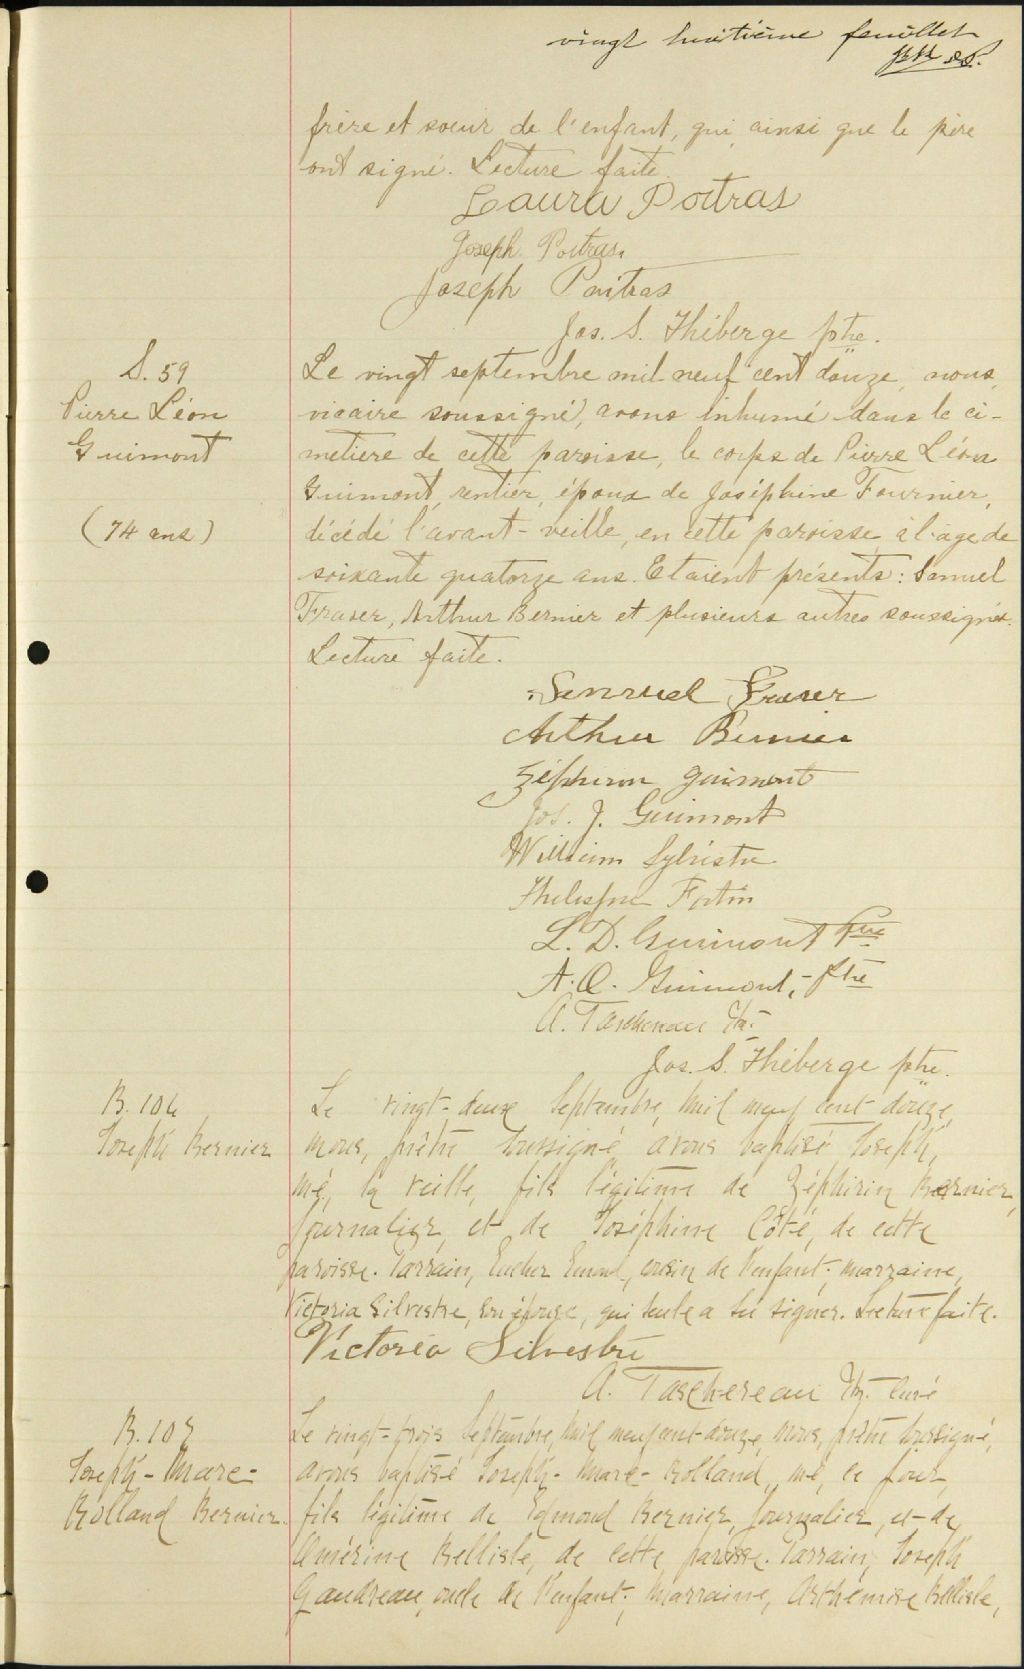 vingt huitième feuillet
frère et soeur de l'enfant, qui ainsi que le père
ont signé. Lecture faite.
Laura Poitras
Joseph Poitras
Joseph Poitras
Jos. S. Théberge ptre.
S. 59
Pierre Léon
Guimont
(74 ans)
Le vingt septembre mil neuf cent douze, nous,
vicaire soussigné, avons inhumé dans le ci-
metière de cette paroisse, le corps de Pierre Léon
Guimont, rentier, époux de Joséphine Fournier,
décédé l'avant-veille, en cette paroisse à l'age de
soixante quatorze ans. Etaient présents: Samuel
Fraser, Arthur Bernier et plusieurs autres soussignés.
Lecture faite.
Samuel Fraser
Arthur Bernier
Zéphirin Guimont
Jos. J. Guimont
William Sylvestre
Thelesphore Fortin
L. D. Guimont Ptre
A. O. Guimont, - ptre
A. Taschereau Ptr.
Jos. S. Théberge ptre.
B. 104
Joseph Bernier
Le vingt-deux Septembre, mil neuf cent douze,
nous, prêtre soussigné avons baptisé Joseph,
né, la veille, fils légitime de Zéphirin Bernier,
journalier, et de Joséphine Côté, de cette
paroisse. Parrain, cousin de l'enfant; marraine,
Victoria Silvestre, son épouse, qui seule a su signer. Lecture faite.
Victoria Silvestre
A. Taschereau Ptr. Curé
B. 105
Joseph-Marc-
Rolland Bernier.
Le vingt-trois Septembre, mil neuf cent-douze, nous, prêtre soussigné,
avons baptisé Joseph-Marc-Rolland, né, ce jour,
fils légitime de Edmond Bernier, journalier, et de
Amérine Bellisle, de cette paroisse. Parrain, Joseph
Gaudreau, oncle de l'enfant; marraine, Arthémise Bellisle,